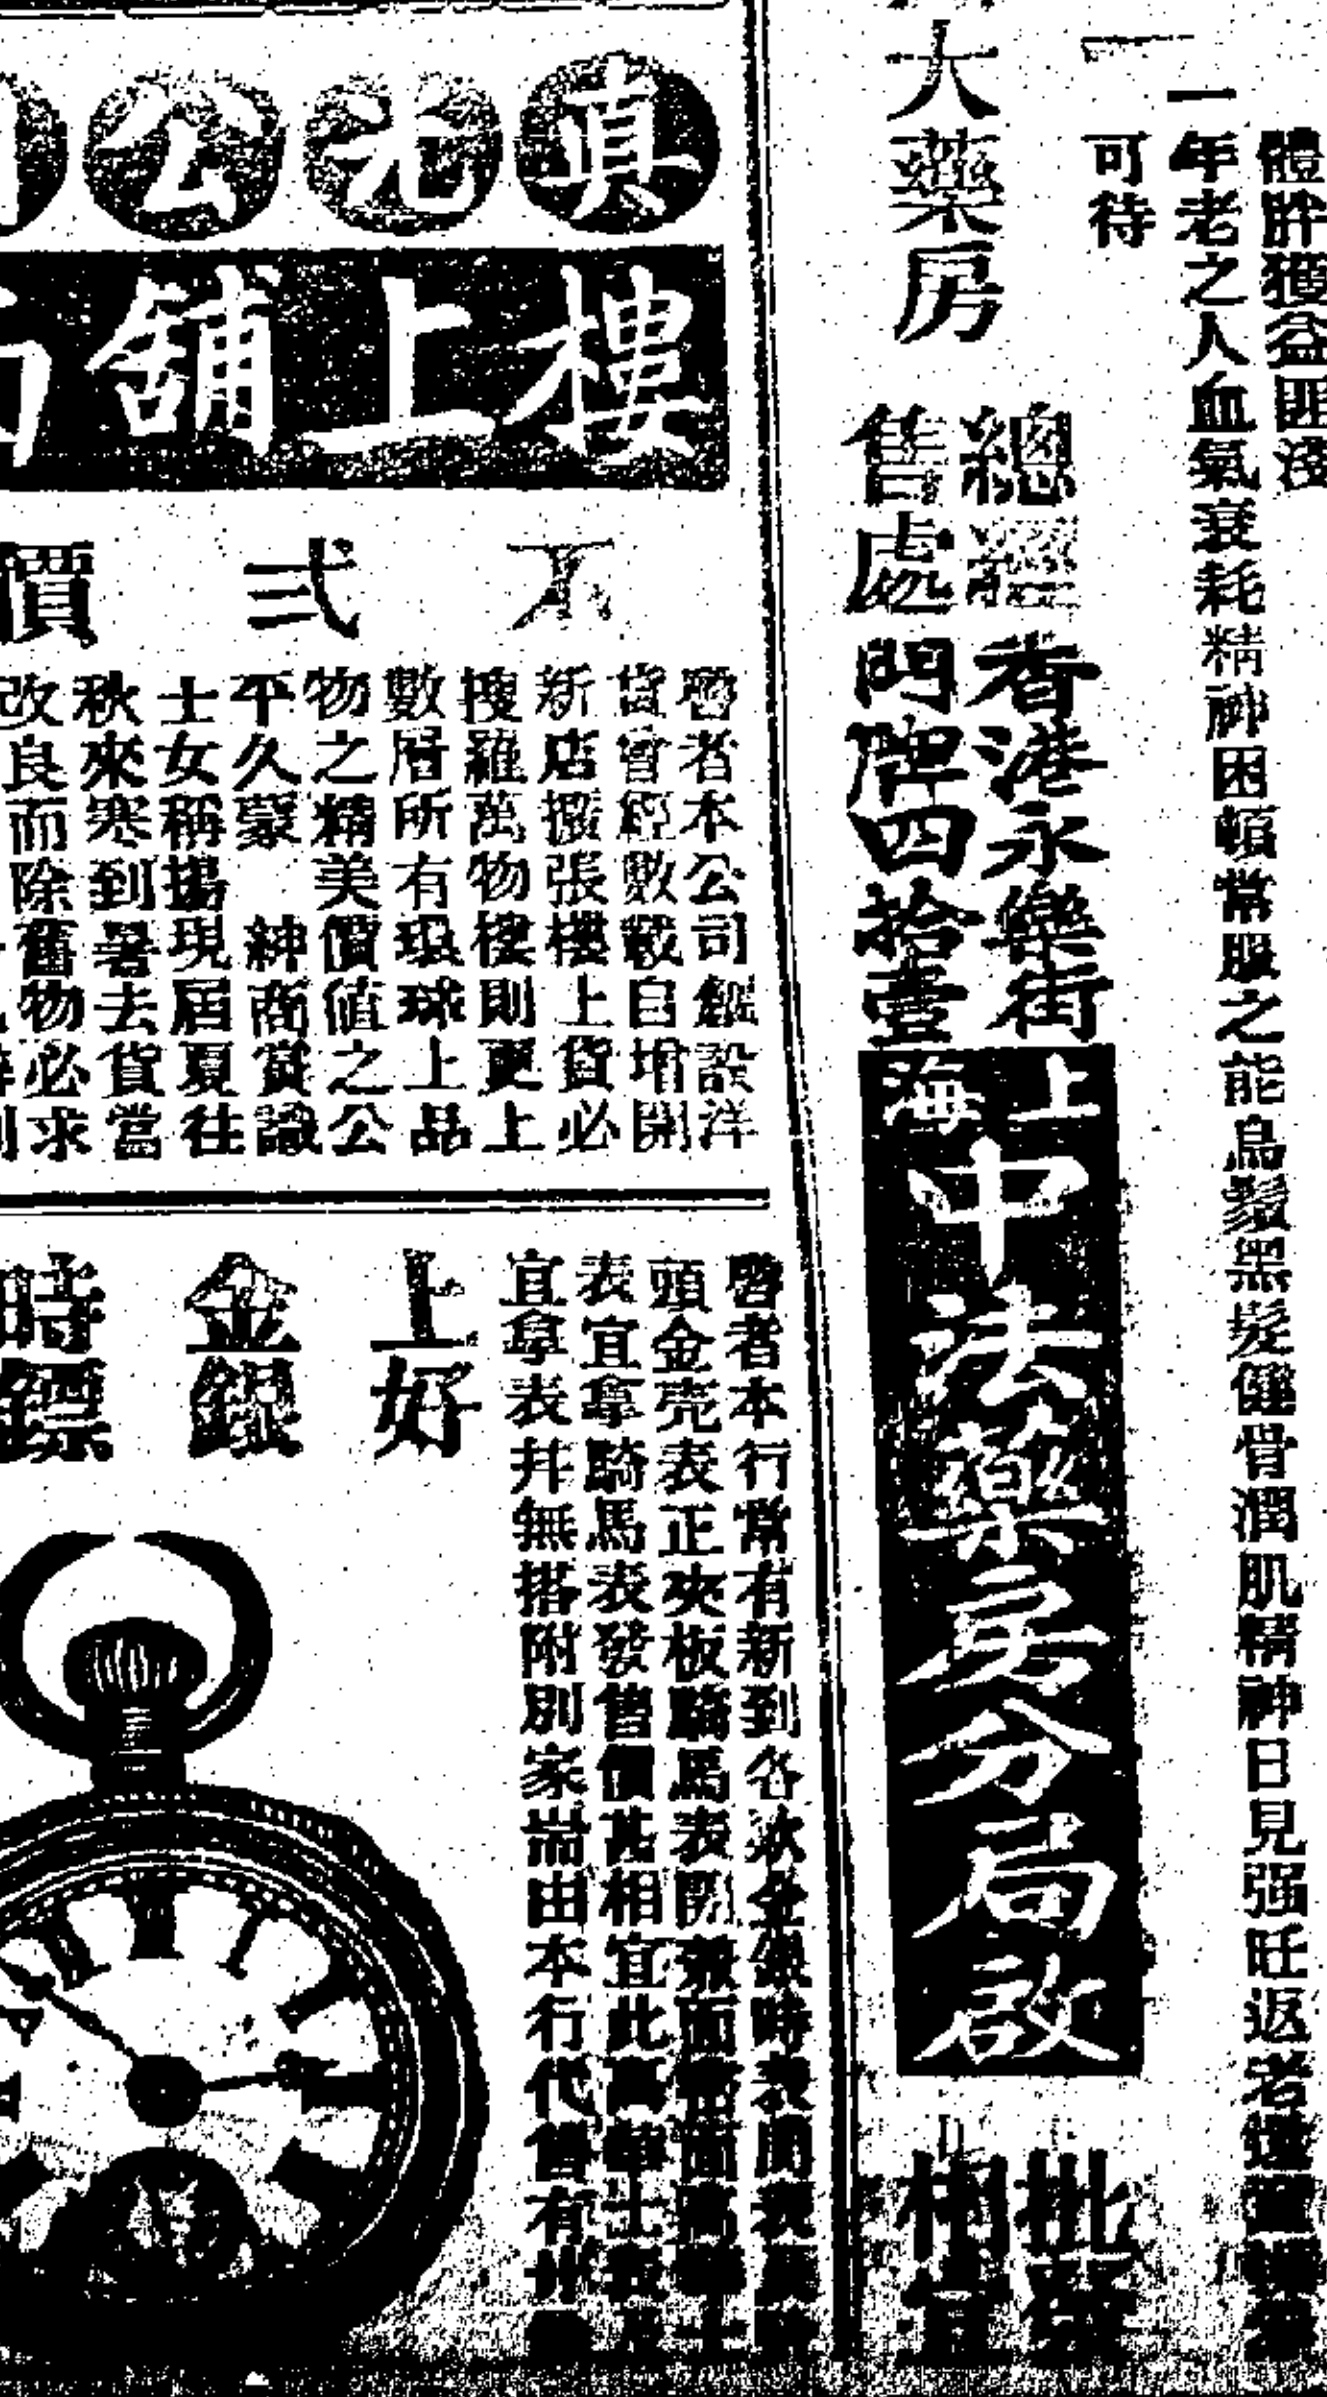 體胖獲益匪淺
一年老之人血氣衰耗精神困頓常服之能烏鬚黑髮健骨潤肌精神日見强旺返老還童
可待
大藥房
總經
售處
香港永樂街
門牌四拾壹
上海
中法藥房分局啟
批發
相宜
真光公
樓上舖
不弍價
啓者本公司創設洋
貨曾經數載自增開
新店擴張樓上貨必
搜羅萬物樓則更上
數層所有環球上品
物之精美價值之公
平久蒙 紳商賞識
士女稱揚現屆夏往
秋來寒到暑去貨當
改良而除舊物必求
啓者本行常有新到各款金銀時表開表
頭金壳表正夾板騎馬表閉
表宜拿騎馬表發售價甚相宜此
宜拿表幷無搭附別家耑由本行代售有
上好
金銀
時鏢